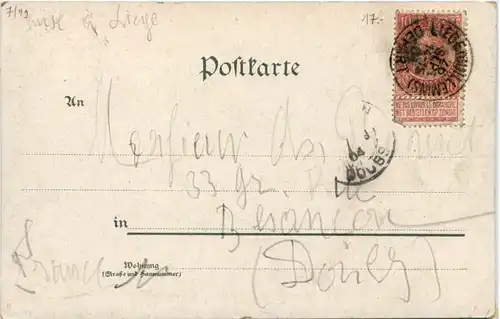 7/99
17.-
mise à Liège
Postkarte
An
Monsieur
33 Gr. Rue
in Besançon
(Doubs)
Wohnung
(Straße und Hausnummer)
France
10
LIEGE (GUILLEMINS)
DEPART
04
DOUBS
NE PAS LIVRER LE DIMANCHE
NIET BESTELLEN OP ZONDAG